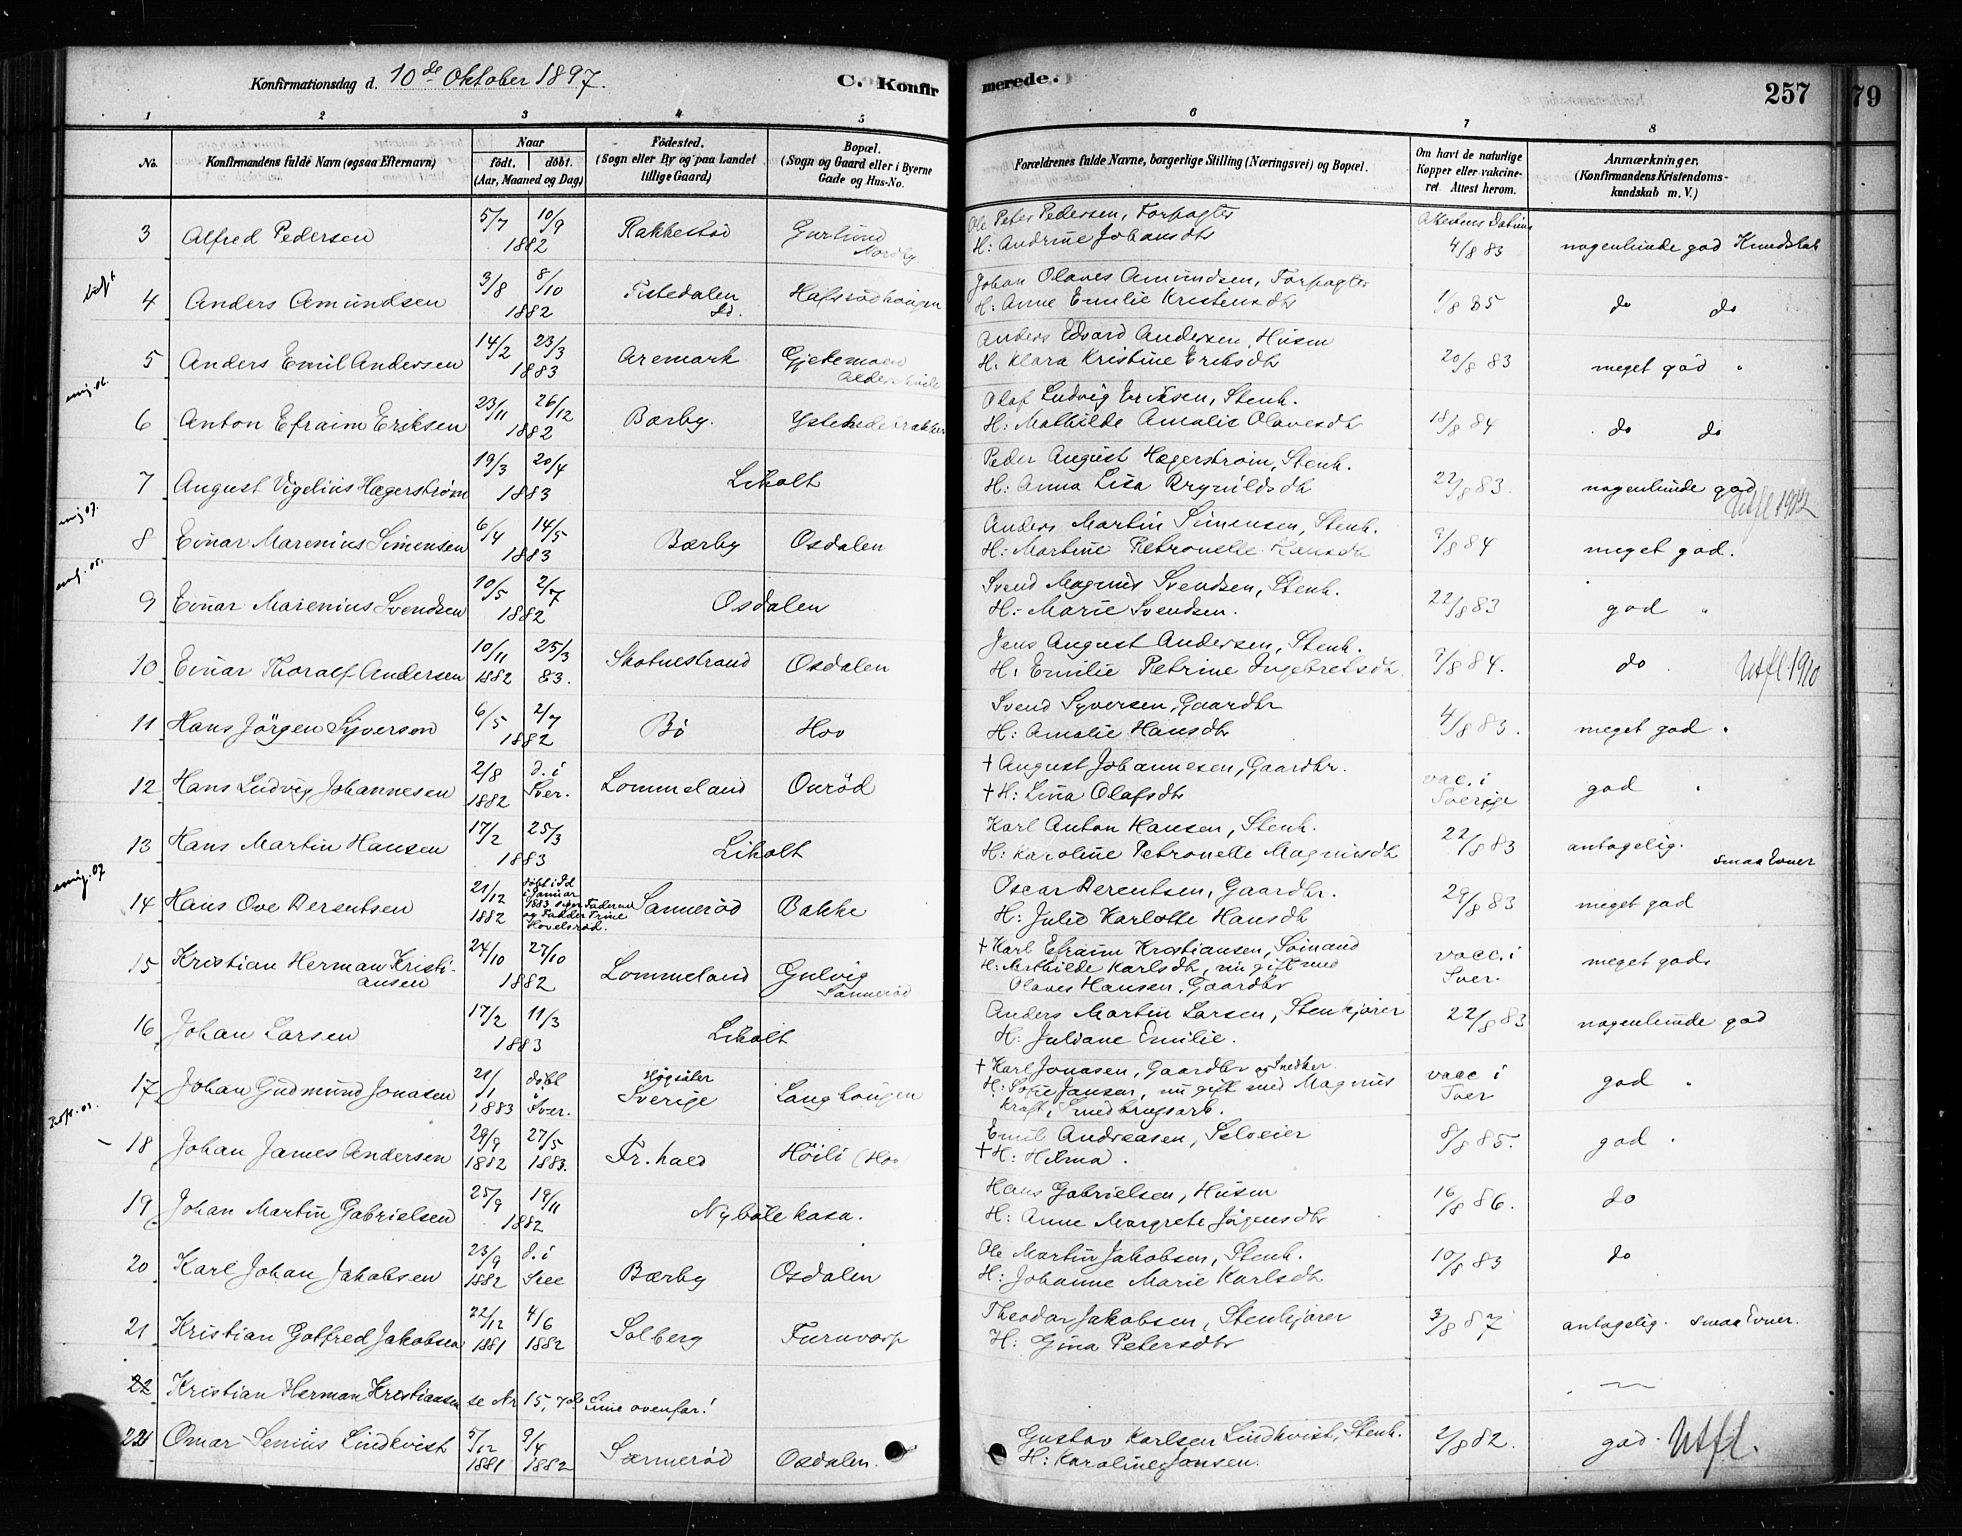 Konfirmationsdag d. 10de Oktober 1897. C. Konfirmerede. 257 79
1 2 3 4 5 6 7 8
No. Konfirmandens fulde Navn (ogsaa Efternavn) Naar født. døbt. (Aar, Maaned og Dag) Fødested. (Sogn eller By og paa Landet tillige Gaard) Bopæl. (Sogn og Gaard eller i Byerne Gade og Hus-No. Forældrenes fulde Navne, borgerlige Stilling (Næringsvei) og Bopæl. Om havt de naturlige Kopper eller vakcineret. Attest herom. Anmærkninger. (Konfirmandens Kristendomskundskab m. V.)
3 Alfred Pedersen 5/7 10/9 1882 Rakkestad Nordby Ole Peter Pedersen, Forpagter
H: Andrine Johansdtr Attestens Datum 4/8 83 nogenlunde god Kundskab
4 Anders Amundsen 3/8 8/10 1882 Tistedalen Id. Hafsrødhaugen Johan Olaves Amundsen, Forpagter
H: Anne Emilie Kristensdtr 1/8 85 do do
5 Anders Emil Andersen 14/2 23/3 1883 Aremark Gjetemoen Anders Edvard Andersen, Husm
H. Klara Kristine Eriksdtr 20/8 83 meget god "
emig. 06.
6 Anton Efraim Eriksen 23/11 26/12 1882 Bærby. Ystehedebakken Olaf Ludvig Eriksen, Stenh.
H: Mathilde Amalie Olavesdtr 18/8 84 do do
7 August Vigelius Hægerstrøm 19/3 20/4 1883 Liholt Peder August Hægerstrøm, Stenh.
H: Anna Lisa Brynildsdtr 22/8 83. nogenlunde god
Utfl 1912
emig 07.
8 Einar Marenius Simensen 6/4 14/5 1883 Bærby Osdalen Anders Martin Simensen, Stenh.
H: Martine Petronelle Hansdtr 9/8 84 meget god.
emig. 05.
9 Einar Marenius Svendsen 10/5 2/7 1882 Osdalen Svend Magnus Svendsen, Stenh.
H: Marie Svendsen. 22/8 83 god "
10 Einar Thoralf Andersen 10/11 1882 25/3 83. Skotnestrand Osdalen Jens August Andersen, Stenh.
H: Emilie Petrine Ingebretsdtr. 9/8 84. do. Utfl 1910
11 Hans Jørgen Syversen 6/5 2/7 1882 Bø Hov Svend Syversen, Gaardbr
H: Amalie Hansdtr 4/8 83. meget god.
12 Hans Ludvig Johannesen 2/8 1882 d. i Sver. Lommeland Onrød † August Johannesen, Gaardbr.
† H: Lina Olafsdtr vac. i Sverige god
13 Hans Martin Hansen 17/2 25/3 1883 Liholt Karl Anton Hansen, Stenh.
H: Karoline Petronelle Magnusdtr 22/8 83 antagelig. smaa Evner
emig. 07
14 Hans Ove Berentsen 21/12 1882 døbt i Id i Januar 1883 siger Faderen og Fadder Trine Hovelsrød. Sannerød Bakke Oscar Berentsen, Gaardbr.
H: Julie Karlotte Hansdtr 29/8 83 meget god
15 Kristian Herman Kristiansen 24/10 27/10 1882 Lommeland Gulvig Sannerød † Karl Efraim Kristiansen, Sømand
H: Mathilde Karlsdtr, nu gift med
Olaves Hansen, Gaardbr vacc. i Sver. meget god.
16 Johan Larsen 17/2 11/3 1883 Liholt Anders Martin Larsen, Stenkjører
H: Juliane Emilie. 22/8 83 nogenlunde god
17 Johan Gudmund Jonasen 21/1 1883 døbt i Sver. Høgsäter Sverige Langhougen † Karl Jonasen, Gaardbr og Snedker
H: Sofie Jansen, nu gift med Magnus
Kraft, Smedbrugsarb. vacc i Sver god "
18 Johan James Andersen 29/9 1882 27/5 1883. Fr.hald Høili (Hov Emil Andreasen, Selveier
† H: Hilma. 8/8 85. god.
19 Johan Martin Gabrielsen 25/9 19/11 1882 Nybølekasa. Hans Gabrielsen, Husm
H: Anne Margrete Jörgensdtr 16/8 86. do
20 Karl Johan Jakobsen 23/9 1882 d. i Bærby Osdalen Ole Martin Jakobsen, Stenh.
H: Johanne Marie Karlsdtr 10/8 83 do
21 Kristian Gotfred Jakobsen 22/12 1881 4/6 1882 Solberg Furuvarp Theodor Jakobsen, Stenkjører
H: Gina Petersdtr 3/8 87 antagelig. smaa Evner.
22 Kristian Herman Kristiansen se Nr 15, 7de Linie ovenfor!
22 Omar Senius Lindkvist 5/12 1881 9/4 1882 Sannerød Osdalen. Gustav Karlsen Lindkvist, Stenh.
H: Karoline Jansen. 2/8 82. god. Utfl.